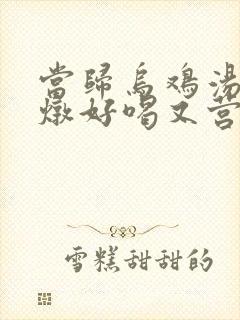 當歸烏鸡湯
燉好喝又营
雪糕甜甜的